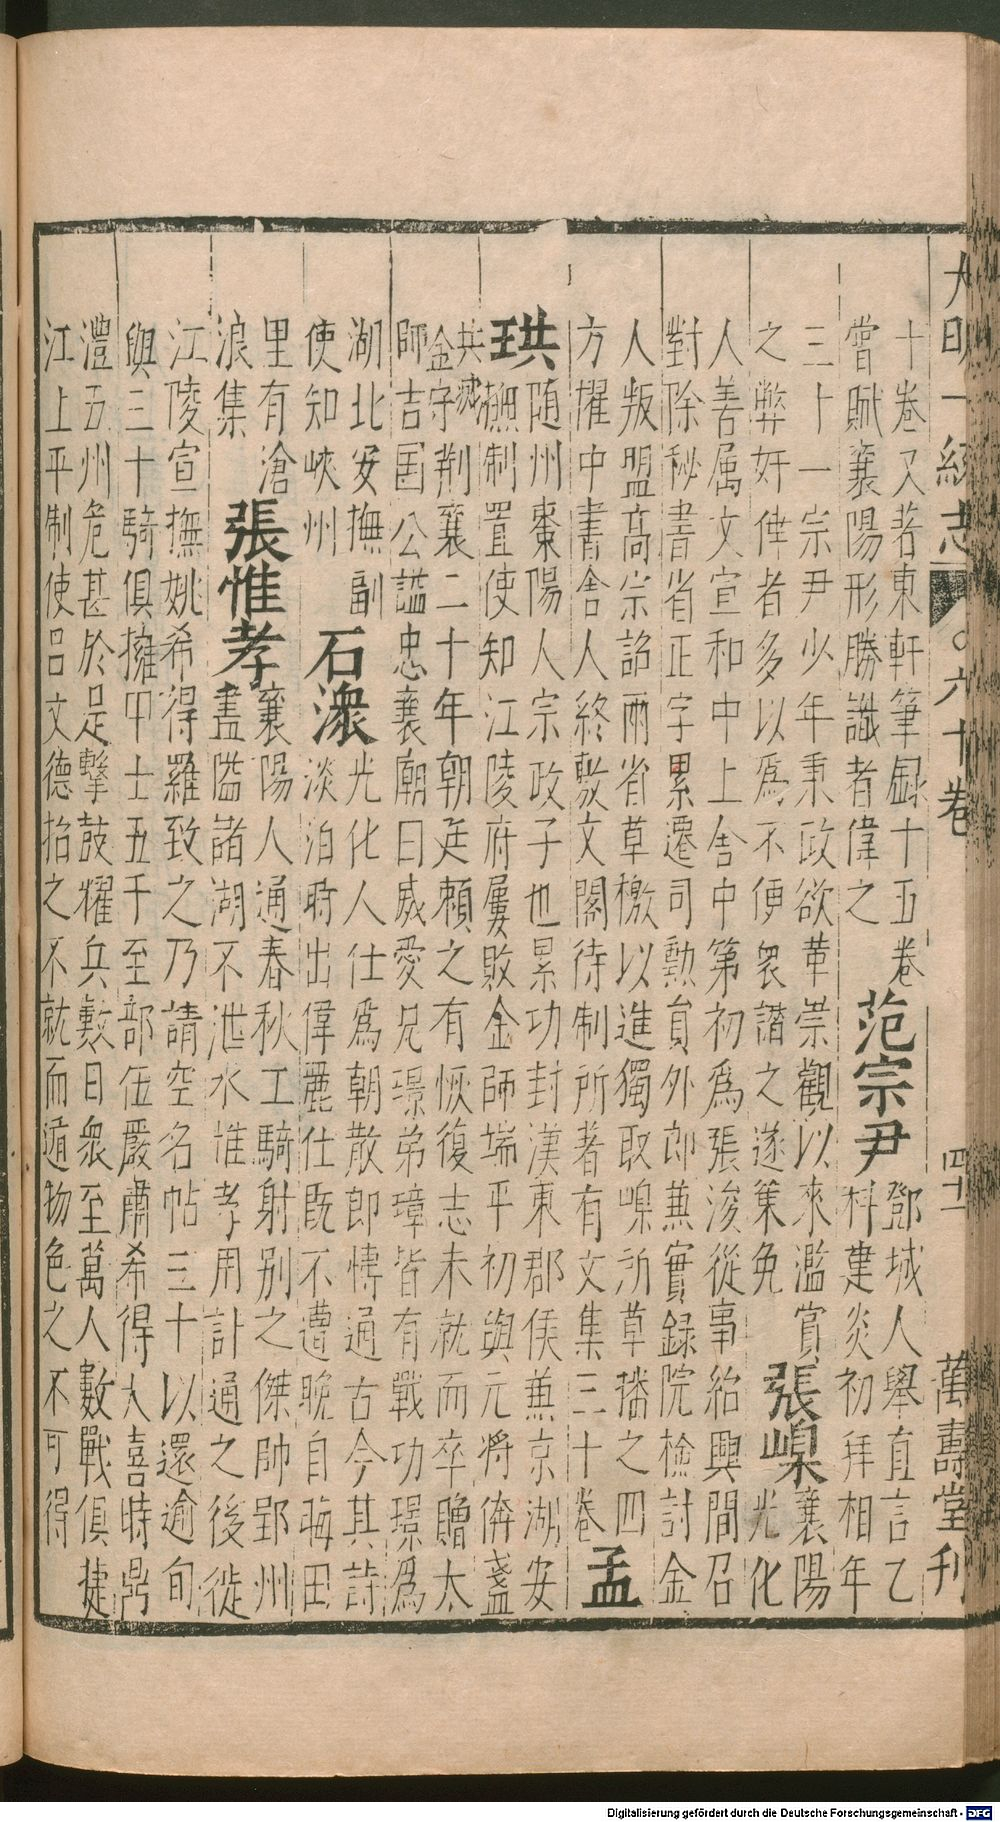 大明一統志 六十卷 四十一 萬壽堂刊
十卷又若東軒筆録十五卷
嘗賦襄陽形勝識者偉之
范宗尹
鄧城人舉直言乙
科建炎初拜相年
三十一宗尹少年秉政欲革崇觀以來濫賞
之弊奸倖者多以爲不便衆譖之遂策免
張嵲
襄陽
光化
人善属文宣和中上舍中第初爲張浚從事紹興間召
對除秘書省正字累遷司勲員外郎兼實録院檢討金
人叛盟高宗詔兩省草檄以進獨取嵲所草播之四
方擢中書舍人終敷文閣待制所著有文集三十卷
孟
珙
随州棗陽人宗政子也累功封漢東郡侯兼京湖安
撫制置使知江陵府屢敗金師端平初與元将倴盞
共滅金守荆襄二十年朝廷頼之有恢復志未就而卒贈太
師吉国公謚忠襄廟曰威愛兄璟弟璋皆有戰功璟爲
湖北安撫副
使知峽州
石
光化人仕爲朝散郎博通古今其詩
淡泊時出偉麗仕既不遭晚自晦田
里有滄
浪集
張惟孝
襄陽人通春秋工騎射别之傑帥郢州
盡隘諸湖不泄水惟孝用計通之後徙
江陵宣撫姚希得羅致之乃請空名帖三十以還逾旬
與三十騎俱擁甲士五千至部伍嚴肅希得大喜時鼎
澧五州危甚於是擊鼓耀兵數日衆至萬人數戰俱捷
江上平制使吕文德招之不就而遁物色之不可得
Digitalisierung gefördert durch die Deutsche Forschungsgemeinschaft - DFG